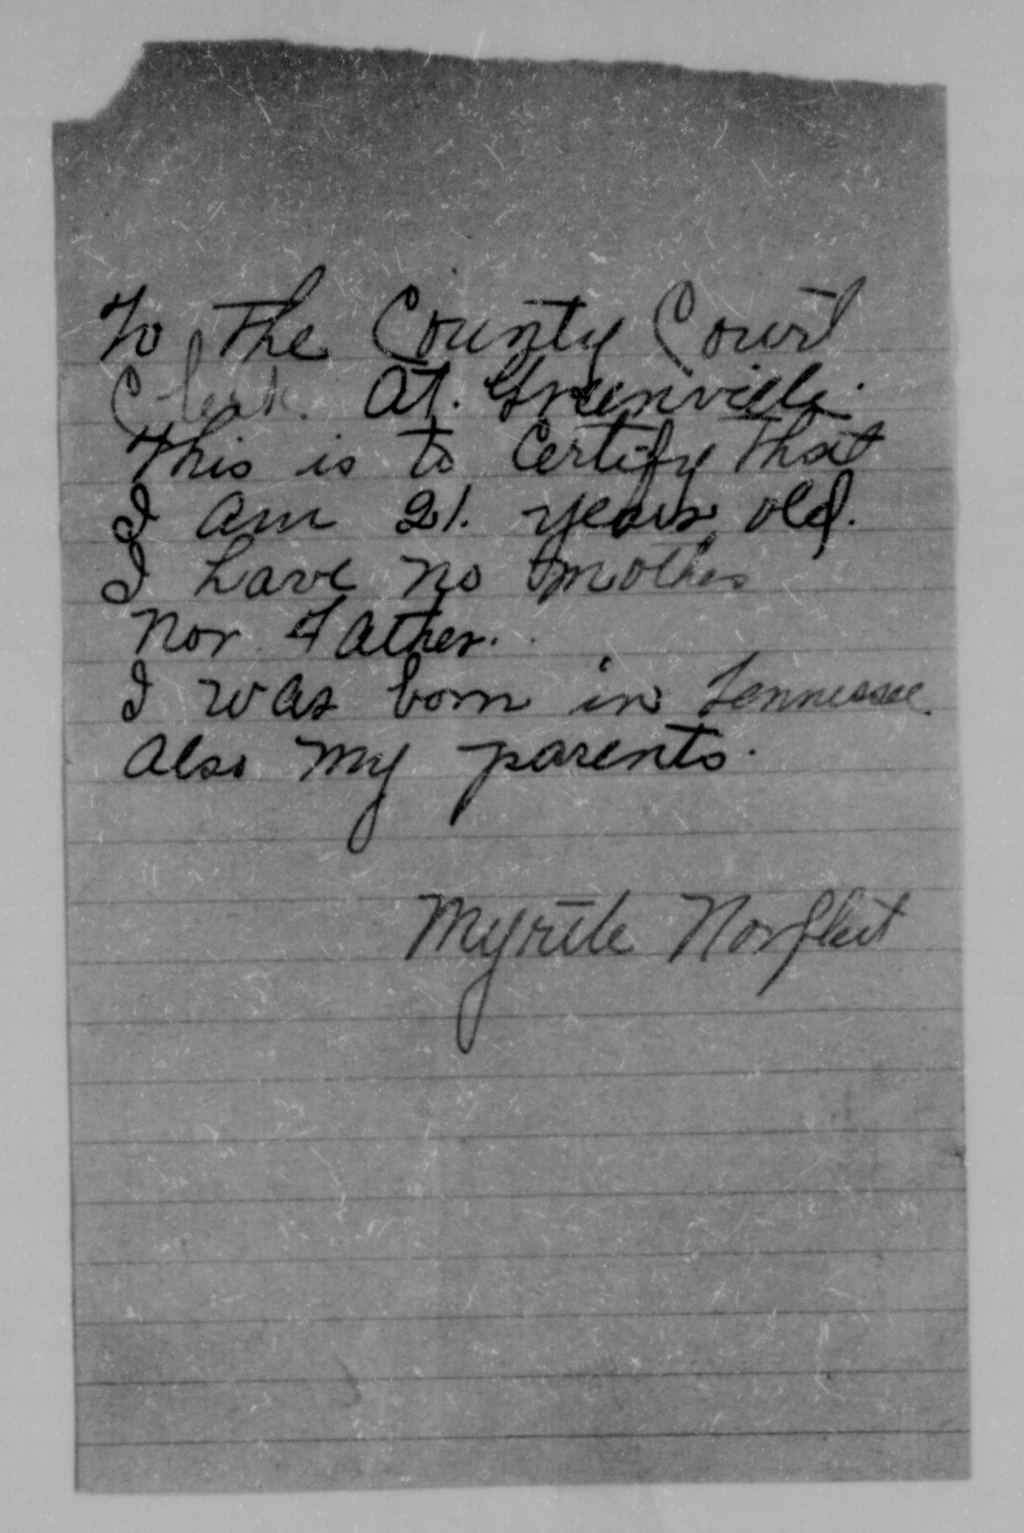 To The County Court
Clerk. At. Greenville.
This is to Certify That
I am 21. years old.
I have no mother
Nor Father.
I was born in Tennessee.
Also My parents.
Myrtle Norfleet